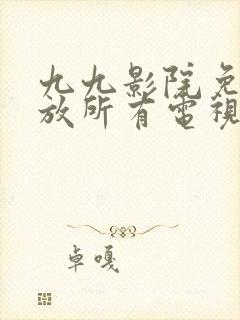 九九影院免
放所有電視
卓嘎